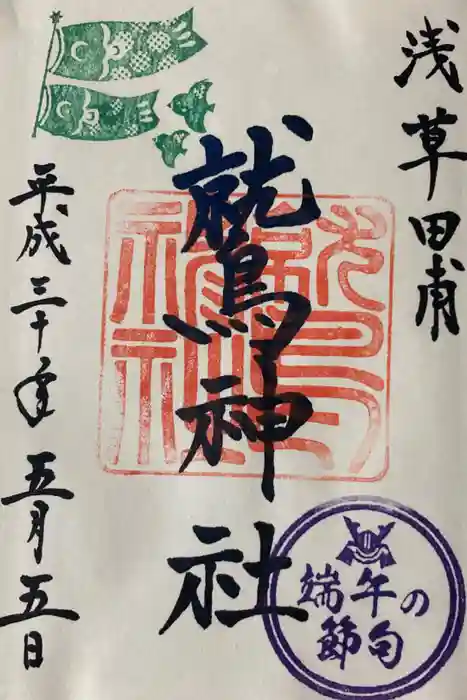 浅草田甫
鷲神社
平成三十年五月五日
端午の
節句